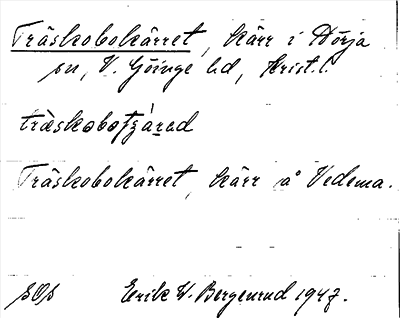 Träskobokärret, kärr i Norja
sn, V. Göinge hd, Krist. l.
träskobotzárad
Träskobokärret, kärr å Vedema.
SOS Erik W. Bergenrud 1947.